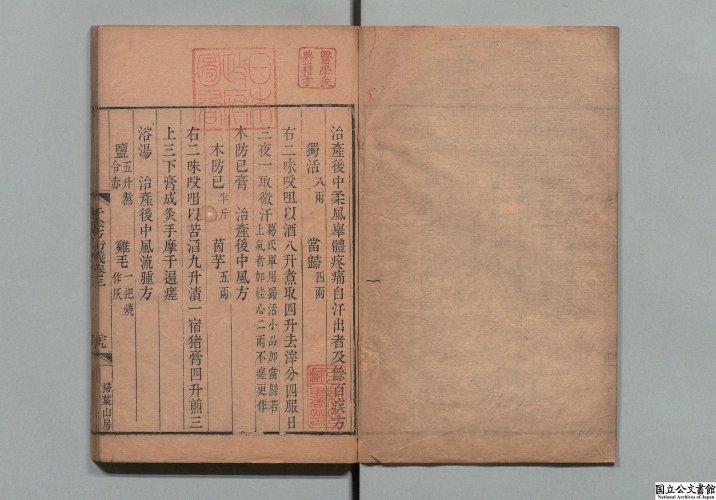 治產後中柔風舉體疼痛自汗出者及餘百疾方
獨活八兩　當歸四兩
右二味㕮咀以酒八升煮取四升去滓分四服日
三夜一取微汗葛氏單用獨活小品加當歸若
上氣者加桂心二兩不瘥更作
木防已膏　治產後中風方
木防已半斤　茵芋五兩
右二味㕮咀以苦酒九升漬一宿猪膏四升煎三
上三下膏成灸手摩千遍瘥
浴湯　治產後中風流腫方
鹽五升煮令赤　雞毛一把燒作灰
千金方衍義卷三
掃葉山房
日本政府圖書
醫學校典籍方
国立公文書館
National Archives of Japan